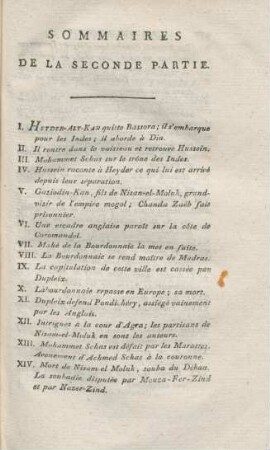 SOMMAIRES
DE LA SECONDE PARTIE.
I. HEYDER-ALY-KAN quitte Bassora; il s'embarque
pour les Indes; il aborde à Diu.
II. Il rentre dans le vaisseau et retrouve Hussein.
III. Mohammet Schas sur le trône des Indes.
IV. Hussein raconte à Heyder ce qui lui est arrivé
depuis leur séparation.
V. Gaziodin-Kan, fils de Nizam-el-Moluk, grand-
visir de l'empire mogol; Chanda Zaëb fait
prisonnier.
VI. Une escadre anglaise paraît sur la côte de
Coromandel.
VII. Mahé de la Bourdonnais la met en fuite.
VIII. La Bourdonnais se rend maître de Madras.
IX. La capitulation de cette ville est cassée par
Dupleix.
X. Labourdonnais repasse en Europe; sa mort.
XI. Dupleix defend Pondichéry, assiégé vainement
par les Anglais.
XII. Intrigues à la cour d'Agra; les partisans de
Nizam-el-Moluk en sont les auteurs.
XIII. Mohammet Schas est défait par les Marattes.
Avènement d'Achmed Schas à la couronne.
XIV. Mort de Nizam el Moluk, souba du Dékan.
La soubadie disputée par Mouza-Fer-Zind
et par Nazer-Zind.